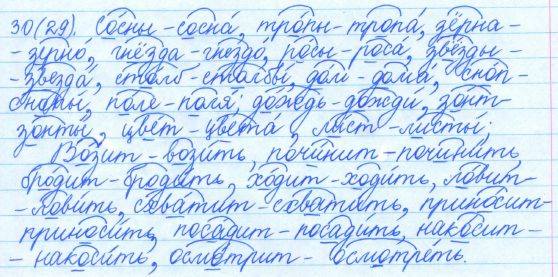 30(29). Со́сны - сосна́, тро́пы - тропа́, зёрна -
- зерно́, гнёзда - гнездо́, ро́сы - роса́, звёзды -
- звезда́, столб - столбы́, дом - дома́, сноп -
снопы́, по́ле - поля́; до́ждь - дожди́, зо́нт -
зо́нты, цвет - цвета́, лист - листы́;
Во́зит - вози́ть, почи́нит - почини́ть,
бро́дит - броди́ть, хо́дит - ходи́ть, ло́вит -
- лови́ть, схва́тит - схвати́ть, прино́сит -
приноси́ть, поса́дит - посади́ть, нако́сит -
- накоси́ть, осмо́трит - осмотре́ть.